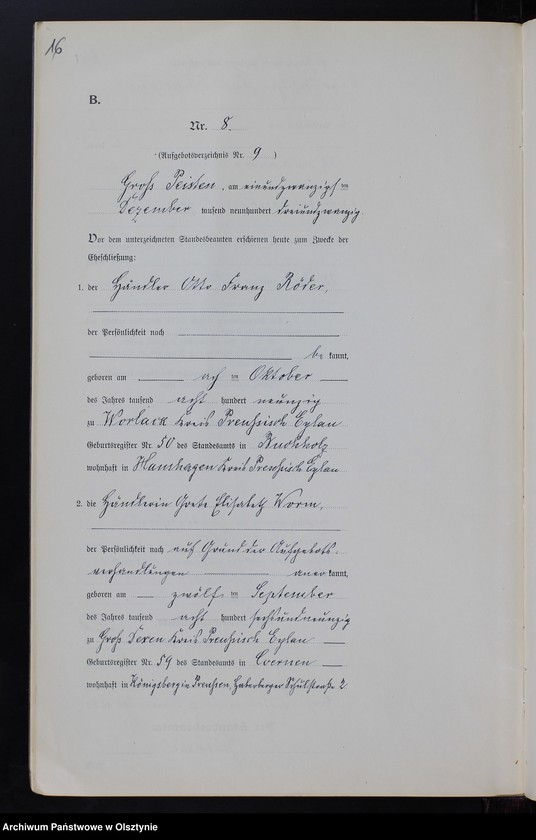 16
B.
Nr. 8.
(Aufgebotsverzeichnis Nr. 9)
Groß Peisten, am einundzwanzigsten
Dezember tausend neunhundert dreiundzwanzig.
Vor dem unterzeichneten Standesbeamten erschienen heute zum Zwecke der
Eheschließung:
1. der Händler Otto Franz Röder,
der Persönlichkeit nach
be kannt,
geboren am acht ten Oktober
des Jahres tausend acht hundert neunzig
zu Worlack Kreis Preußisch Eylau
Geburtsregister Nr. 50 des Standesamts in Buchholz
wohnhaft in Hanshagen Kreis Preußisch Eylau
2. die Händlerin Grete Elisabeth Worm,
der Persönlichkeit nach auf Grund der Aufgebots-
verhandlungen aner kannt,
geboren am zwölf ten September
des Jahres tausend acht hundert sechsundneunzig
zu Groß Dexen Kreis Preußisch Eylau
Geburtsregister Nr. 59 des Standesamts in
wohnhaft in Königsberg in Preußen, Haberberger Schulstraße 2
Archiwum Państwowe w Olsztynie